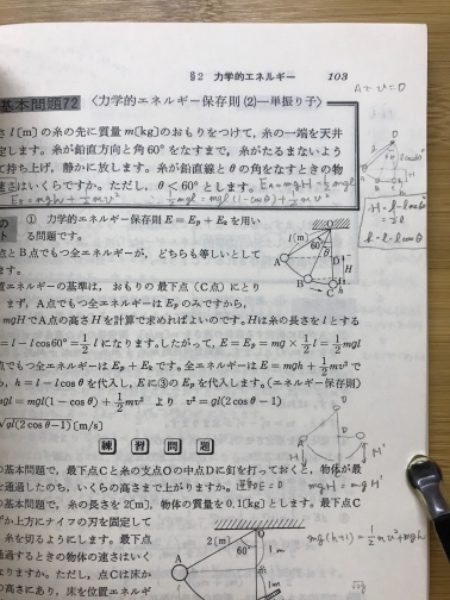 §2 力学的エネルギー 103
基本問題72 〈力学的エネルギー保存則(2)—単振り子〉
さ l[m] の糸の先に質量 m[kg]のおもりをつけて,糸の一端を天井
定します。糸が鉛直方向と角60°をなすまで,糸がたるまないよう
て持ち上げ,静かに放します。糸が鉛直線とθの角をなすときの物
速さはいくらですか。ただし,θ<60°とします。
① 力学的エネルギー保存則 E=Ep+Ek を用い
る問題です。
点とB点でもつ全エネルギーが,どちらも等しいとして
ます。
置エネルギーの基準は,おもりの最下点(C点)にとり
まず,A点でもつ全エネルギーは Ep のみですから,
mgH でA点の高さHを計算で求めればよいのです。Hは糸の長さをlとする
=l-lcos60°=1/2 l になります。したがって,E=Ep=mg×1/2 l=1/2 mgl
点でもつ全エネルギーは Ep+Ek です。全エネルギーは E=mgh+1/2 mv² で
ら,h=l-lcosθを代入し,Eに③の Ep を代入します。(エネルギー保存則)
mgl=mgl(1-cosθ)+1/2 mv² より v²=gl(2cosθ-1)
√gl(2cosθ-1) [m/s]
l[m]
60°
θ
O
A
B
C
D
H
h
練習問題
の基本問題で,最下点Cと糸の支点Oの中点Dに釘を打っておくと,物体が最
を通過したのち,いくらの高さまで上がりますか。
mgH = mgH'
の基本問題で,糸の長さを2[m],物体の質量を0.1[kg]とします。最下点C
か上方にナイフの刃を固定して
糸を切るようにします。最下点
通過するときの物体の速さはいく
なりますか。ただし,点Cは床か
の高さにあり,床を位置エネルギ
2[m]
60°
A
糸
1m